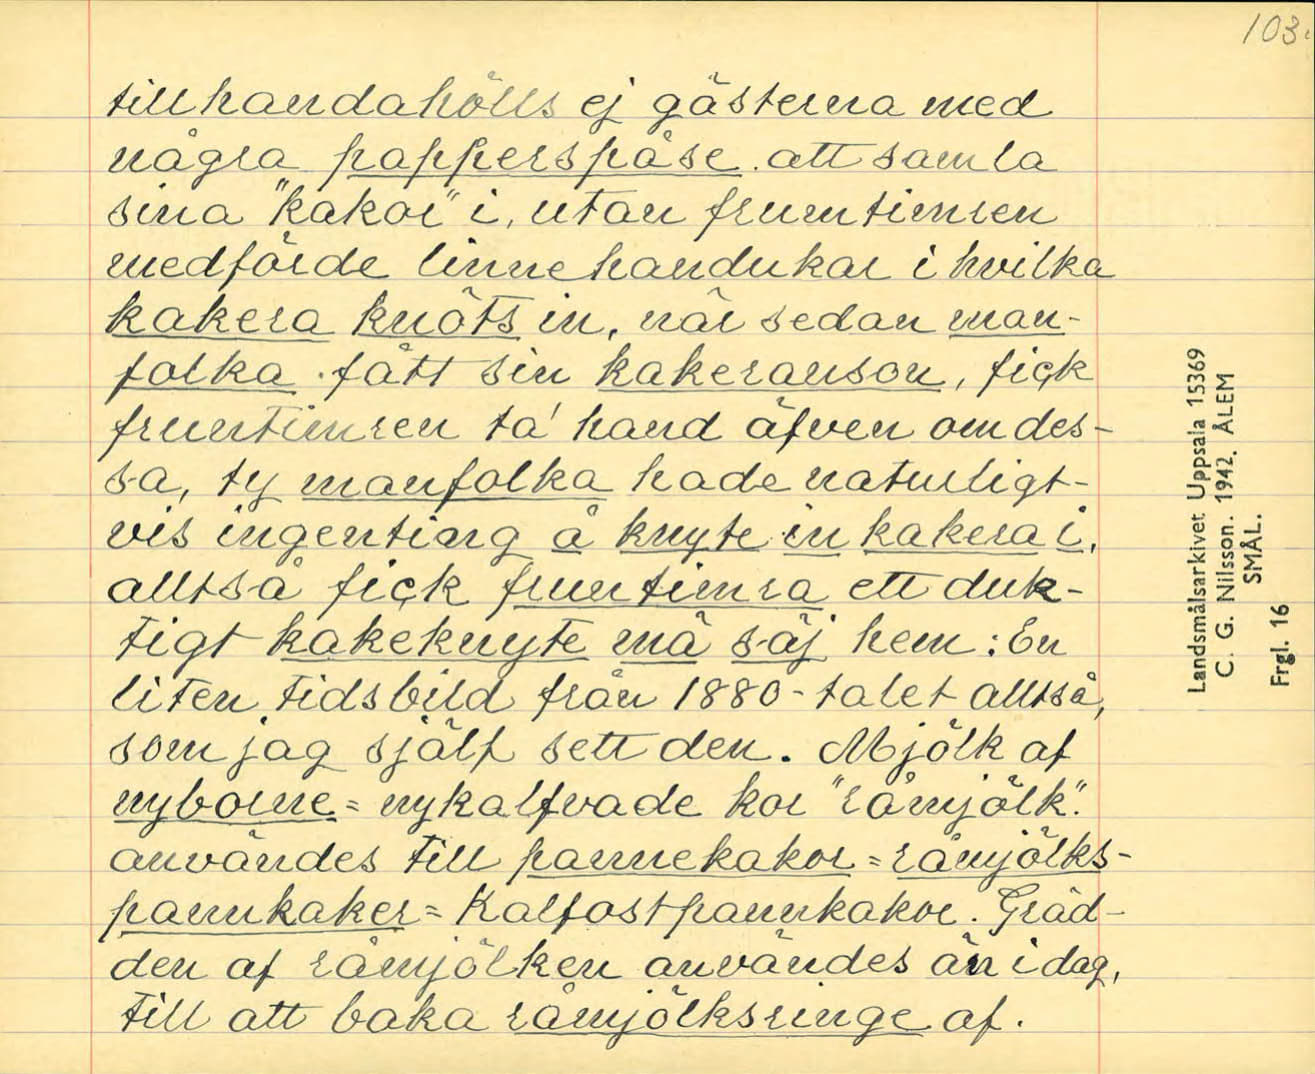 103.
tillhandahölls ej gästerna med
några papperspåse att samla
sina "kakor" i, utan fruntimren
medförde linnehandukar i hvilka
kakera knöts in, när sedan man-
folka fått sin kakeranson, fick
fruntimren ta' hand äfven om des-
sa, ty manfolka hade naturligt-
vis ingenting å knyte in kakera i,
alltså fick fruntimra ett duk-
tigt kakeknyte mä säj hem: En
liten tidsbild från 1880-talet alltså,
som jag själf sett den. Mjölk af
nyborne = nykalfvade kor "råmjölk".
användes till pannekakor = råmjölks-
pannkaker = Kalfostpannkakor. Gräd-
den af råmjölken användes än i dag,
till att baka råmjölksringe af.
Landsmålsarkivet Uppsala 15369
C. G. Nilsson. 1942. ÅLEM
SMÅL.
Frgl. 16